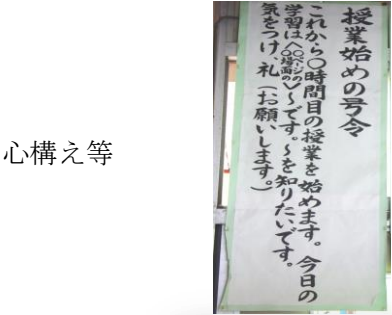 心構え等
授業始めの号令
これから〇時間目の授業を始めます。今日の
学習は〈〇ページの〇場面の〉〜です。〜を知りたいです。
気をつけ、礼（お願いします。）